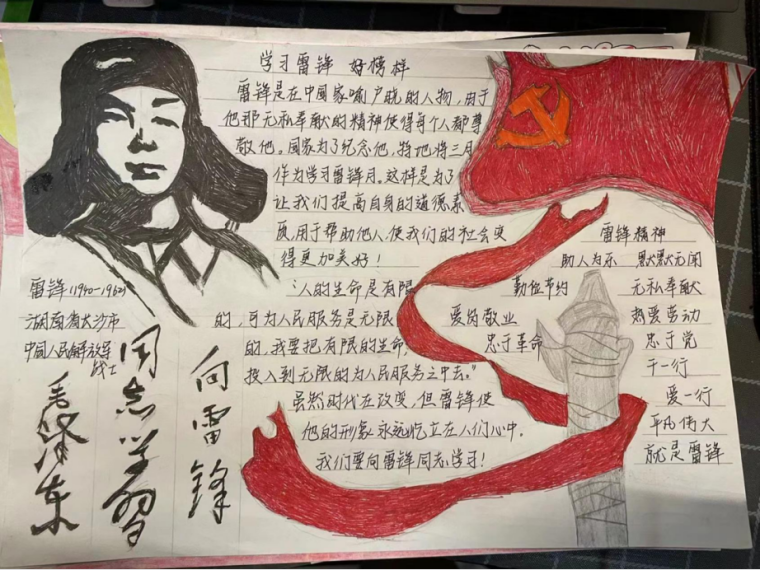 学习雷锋 好榜样
雷锋是在中国家喻户晓的人物，由于
他那无私奉献的精神使得每个人都尊
敬他。国家为了纪念他，特地将三月
作为学习雷锋月。这样是为了
让我们提高自身的道德素
质，用于帮助他人，使我们的社会变
得更加美好！
“人的生命是有限
的，可为人民服务是无限
的，我要把有限的生命，
投入到无限的为人民服务之中去。”
虽然时代在改变，但雷锋使
他的形象永远屹立在人们心中。
我们要向雷锋同志学习！
雷锋(1940-1962)
湖南省长沙市
中国人民解放军
战士
向雷锋
同志学习
毛泽东
雷锋精神
助人为乐 默默无闻
勤俭节约 无私奉献
爱岗敬业 热爱劳动
忠于革命 忠于党
干一行
爱一行
平凡伟大
就是雷锋